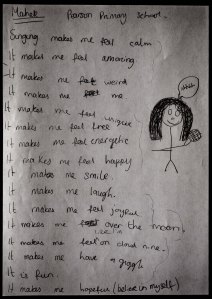 Makes Pearson Primary School.
Singing makes me feel calm
It makes me feel amazing
It makes me weird
It makes me me
It makes me feel unique
It makes me feel free
It makes me feel energetic
It makes me feel happy
It makes me smile.
It makes me laugh.
It makes me feel joyful.
It makes me over the moon.
like I'm
It makes me feel on cloud nine.
It makes me have a giggle
It is fun.
It makes me hopeful (believe in myself)